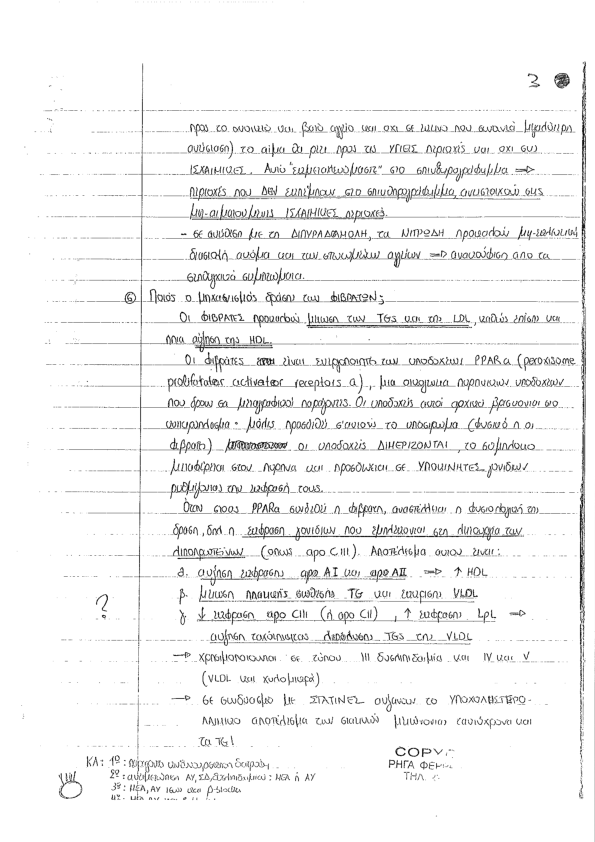 3
προς το ανοικτό και βατό αγγείο και όχι σε εκείνο που συναντά μεγαλύτερη
αντίσταση) το αίμα θα ρέει προς τις ΥΓΙΕΙΣ περιοχές και όχι στις
ΙΣΧΑΙΜΙΚΕΣ. Αυτό "
" στο σπινθηρογράφημα ⇒
περιοχές που ΔΕΝ εκπέμπουν στο σπινθηρογράφημα, αντιστοιχούν στις
μη-αιματούμενες ΙΣΧΑΙΜΙΚΕΣ περιοχές.
- σε αντίθεση με τη ΔΙΠΥΡΑΔΑΜΟΛΗ, τα ΝΙΤΡΩΔΗ προκαλούν μη-εκλεκτική
διαστολή ακόμα και των στενωμένων αγγείων ⇒ ανακούφιση από τα
στηθαγχικά συμπτώματα.
⑥ Ποιός ο μηχανισμός δράσης των ΦΙΒΡΑΤΩΝ;
Οι ΦΙΒΡΑΤΕΣ προκαλούν μείωση των TGs και της LDL, καθώς επίσης και
ήπια αύξηση της HDL.
Οι φιβράτες είναι ενεργοποιητές των υποδοχέων PPARa (peroxisome
proliferator activator receptors a), μια οικογένεια πυρηνικών υποδοχέων
που δρουν σα μεταγραφικοί παράγοντες. Οι υποδοχείς αυτοί αρχικά βρίσκονται στο
κυτταρόπλασμα· μόλις προσδεθεί σ'αυτούς το υπόστρωμα (φυσικό ή οι
φιβράτες) οι υποδοχείς ΔΙΜΕΡΙΖΟΝΤΑΙ, το σύμπλοκο
μεταφέρεται στον πυρήνα και προσδένεται σε ΥΠΟΚΙΝΗΤΕΣ γονιδίων
ρυθμίζοντας την έκφρασή τους.
Όταν στους PPARa συνδεθεί η φιβράτη, αναστέλλεται η φυσιολογική της
δράση, δηλ η έκφραση γονιδίων που εμπλέκονται στη λειτουργία των
λιποπρωτεϊνών (όπως apo CIII). Αποτέλεσμα αυτού είναι:
a. αύξηση έκφρασης apo AI και apo AII ⇒ ↑ HDL
β. μείωση ηπατικής σύνθεσης TG και έκκρισης VLDL
? γ. ↓ έκφραση apo CIII (ή apo CII), ↑ έκφρασης LpL ⇒
αύξηση ταχύτητας διάσπασης TGs της VLDL
→ χρησιμοποιούνται σε τύπου III δυσλιπιδαιμία και IV και V
(VLDL και χυλομικρά)
→ σε συνδυασμό με ΣΤΑΤΙΝΕΣ αυξάνουν το ΥΠΟΧΟΛΗΣΤΕΡΟ-
ΛΑΙΜΙΚΟ αποτέλεσμα των στατινών μειώνοντας ταυτόχρονα και
τα TG!
COPY
ΡΗΓΑ ΦΕΡ
ΤΗΛ.
ΚΑ: 1º:
2º: αντιμετώπιση ΑΥ, ΣΔ, δυσλιπιδαιμιών: ΜΕΑ ή ΑΥ
3º: ΜΕΑ, ΑΥ ίσως και β-blocker
4º: